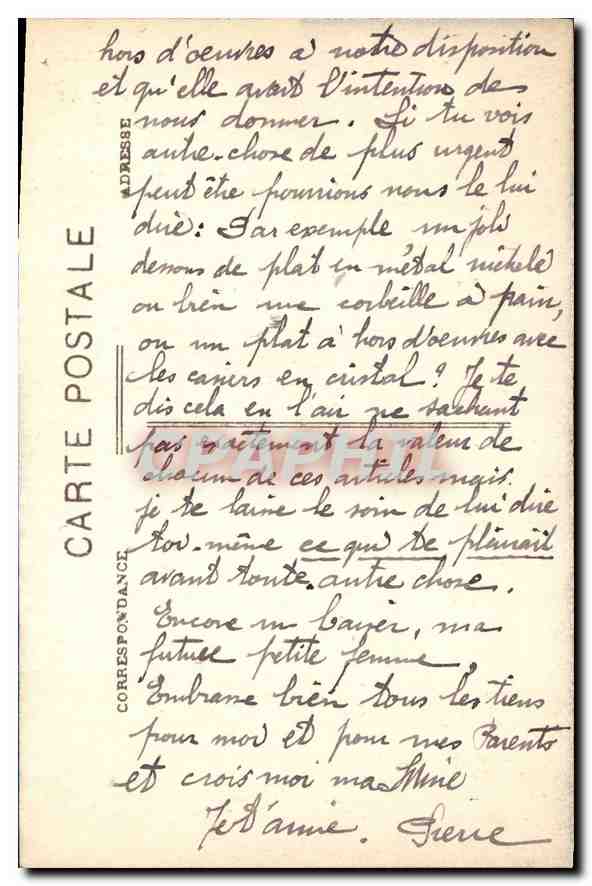 hors d'oeuvres à notre disposition
et qu'elle avait l'intention de
nous donner. Si tu vois
autre-chose de plus urgent
peut être pourrions nous le lui
dire: Par exemple un joli
dessous de plat en métal nickelé
ou bien une corbeille à pain,
ou un plat à hors d'oeuvres avec
les casiers en cristal? Je te
dis cela en l'air ne sachant
pas exactement la valeur de
chacun de ces articles mais
je te laisse le soin de lui dire
toi-même ce qui te plairait
avant toute autre chose.
Encore un baiser, ma
future petite femme,
Embrasse bien tous les tiens
pour moi et pour mes Parents
et crois moi ma Mine
Je t'aime. Pierre
CARTE POSTALE
ADRESSE
CORRESPONDANCE
CPAPHIL